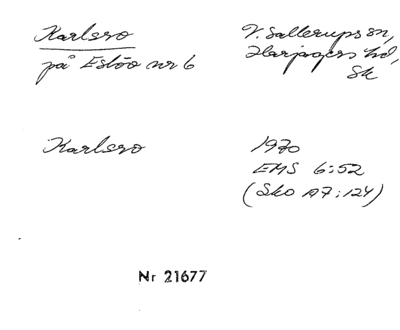 Karlsro
på Eslöv nr 6
V. Sallerups sn,
Harjagers hd,
Sk
Karlsro
1970
EMS 6:52
(Sko A7:124)
Nr 21677